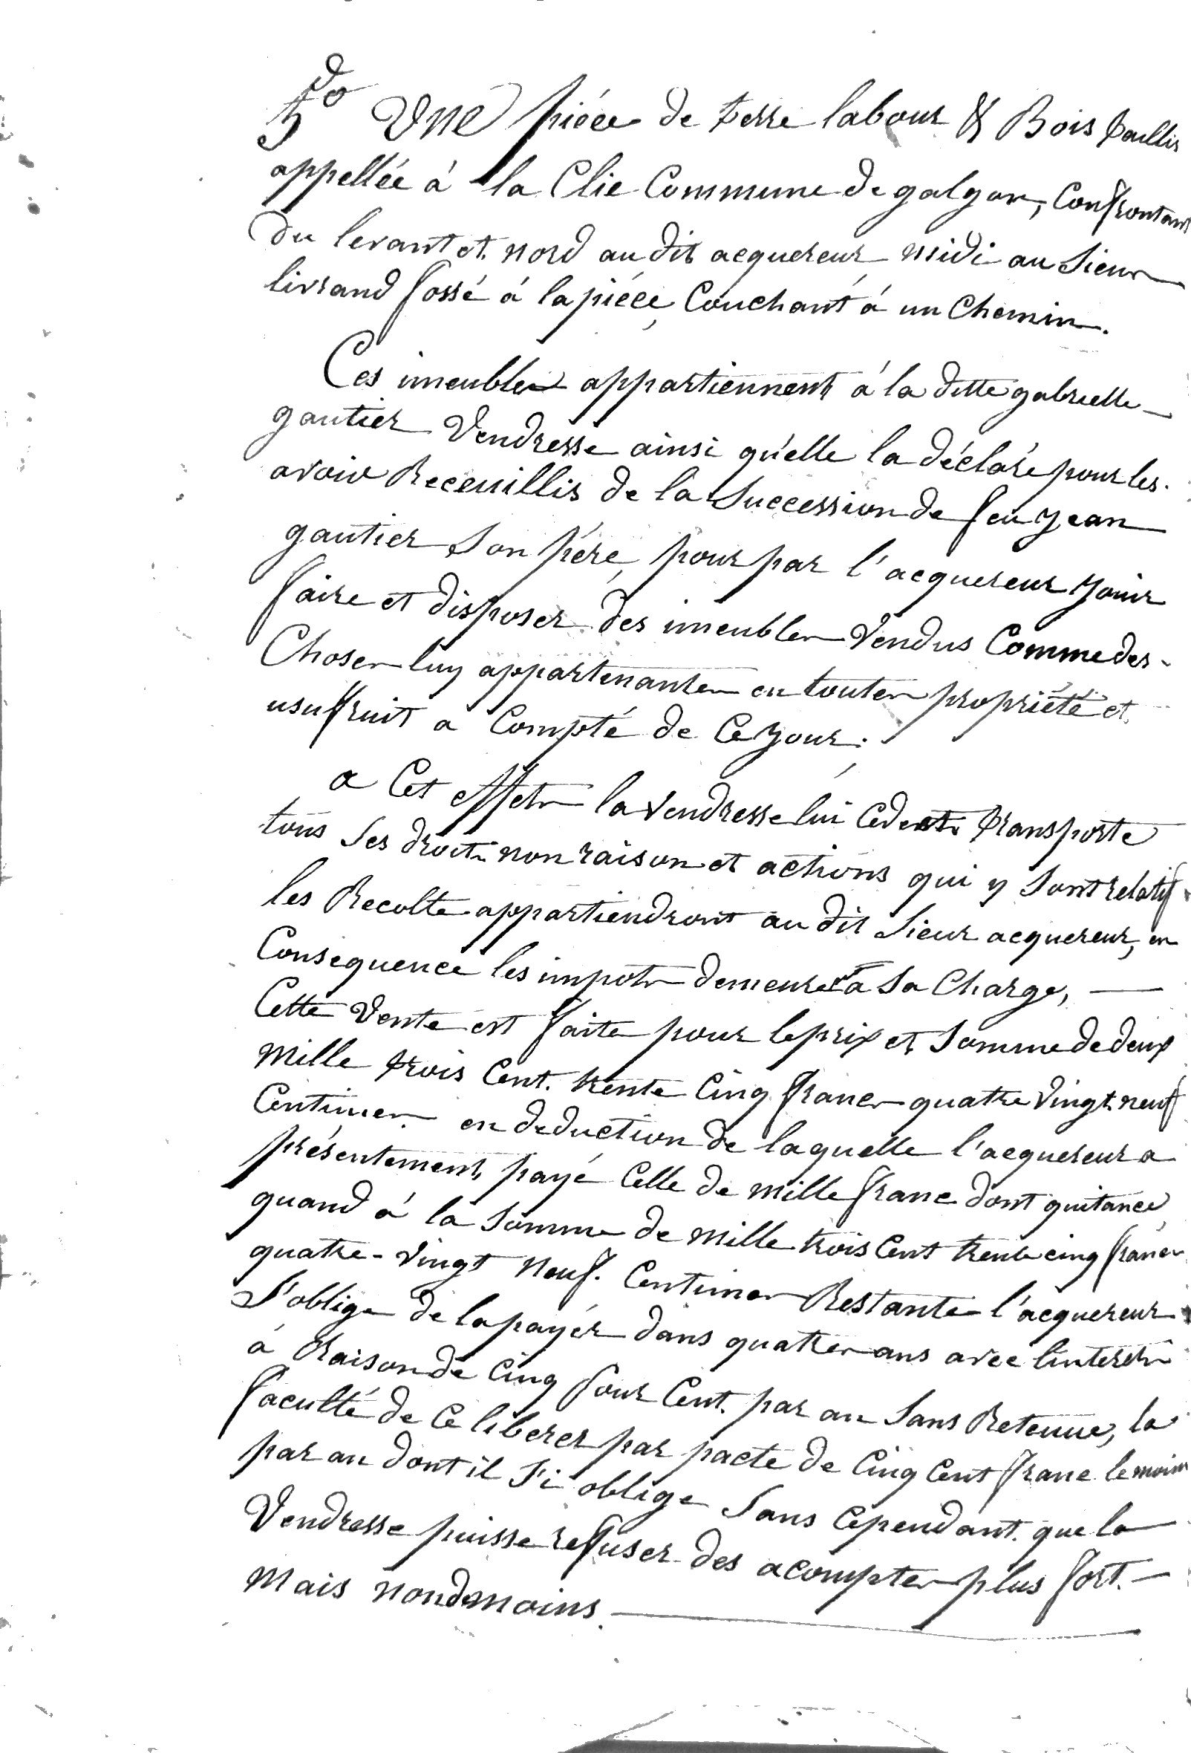 5do Une piéce de terre labour & Bois taillis
appellée á la Clie Commune de galgon, Confrontant
Du levant et nord au dit acquereur midi au Sieur
livrand fossé á la piéce, Couchant á un Chemin.
Ces imeubles appartiennent á la ditte gabrielle
gautier Vendresse ainsi qu'elle la déclaré pour les
avoir Receuillis de la Succession de feu jean
gautier Son pére, pour par l'acquereur jouir
faire et disposer des imeubles Vendus Comme des
Choses luy appartenantes en toutes propriété et
usufruit a Compté de Ce jour.
a Cet effets la Vendresse lui Cede et transporte
tous Ses droits non raison et actions qui y Sont relatif
les Recolte appartiendront au dit Sieur acquereur, en
Consequence les impots demeure a Sa Charge,
Cette Vente est faite pour le prix et Somme de deux
mille trois Cent trente Cinq francs quatre Vingt neuf
Centimes en deduction de laquelle l'acquereur a
présentement payé Celle de mille franc dont quitance
quand á la Somme de mille trois Cent trente cinq francs
quatre-Vingt neuf Centimes Restante l'acquereur
S'oblige de la payér dans quatres ans avec l'interets
á Raison de Cinq pour Cent par an Sans Retenue, la
faculté de Ce liberer par pacte de Cinq Cent franc le moins
par an dont il S'i oblige Sans Cependant que la
Vendresse puisse refuser des acomptes plus fort
mais non de moins